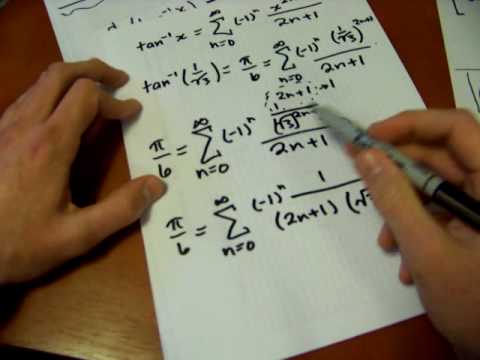 tan⁻¹x = ∞ Σ n=0 (-1)ⁿ x²ⁿ⁺¹ / 2n+1
tan⁻¹(1/√3) = π/6 = ∞ Σ n=0 (-1)ⁿ (1/√3)²ⁿ⁺¹ / 2n+1
2n+1
π/6 = ∞ Σ n=0 (-1)ⁿ 1 / (√3) / 2n+1
π/6 = ∞ Σ n=0 (-1)ⁿ 1 / (2n+1)(√